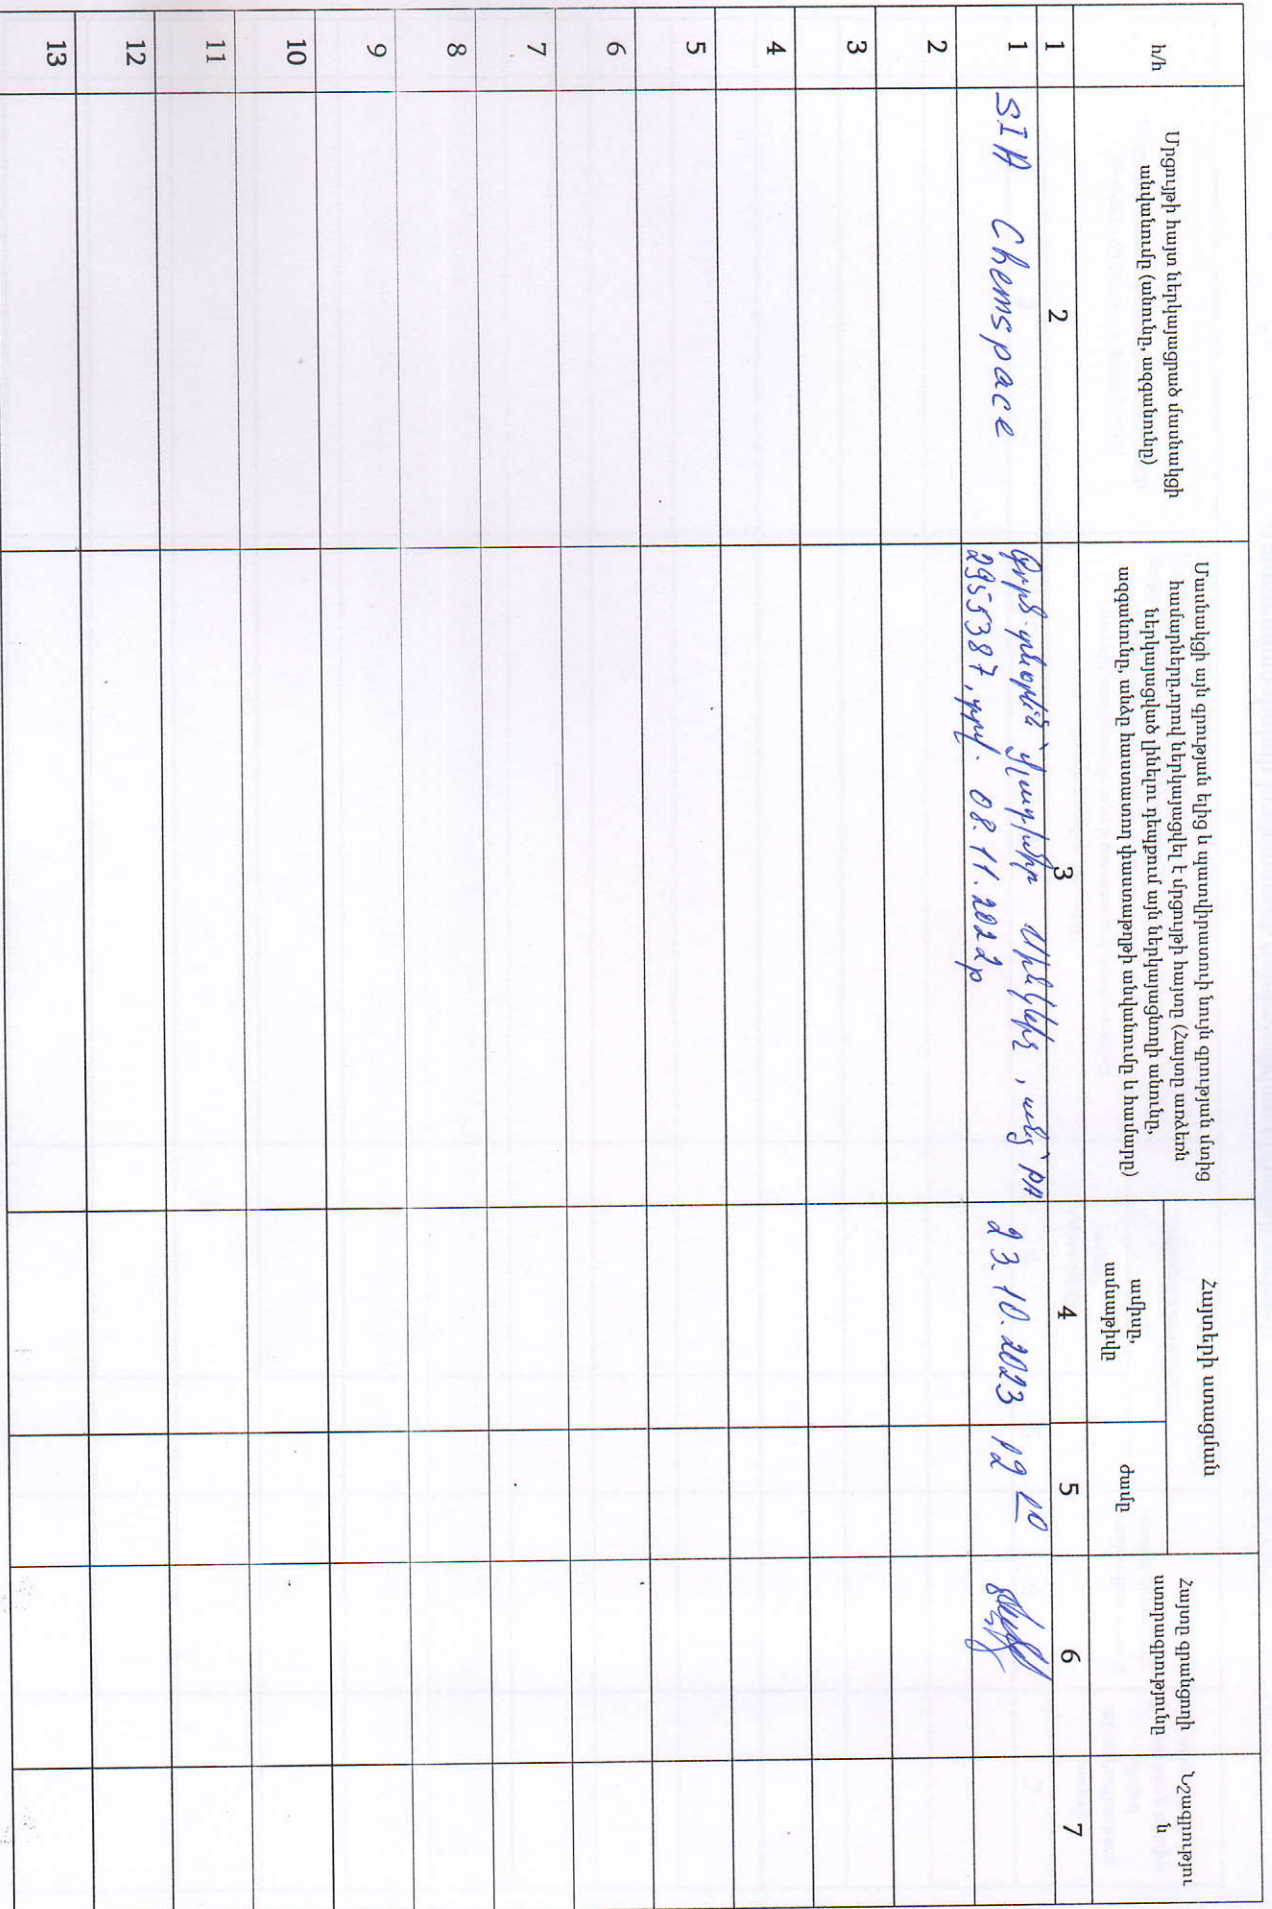 հ/հ
Մրցույթի հայտ ներկայացրած մասնակցի
անվանումը (անունը, ազգանունը)
Մասնակցի այն գրության ելից և պատվիրատուի նույն գրության մտից
համարները,որով ներկայացվել է մրցույթի հայտը (Հայտը առձեռն
ներկայացված լինելու դեպքում այն ներկայացնողի անունը,
ազգանունը, անձը հաստատող փաստաթղթի անվանումը և համարը)
Հայտերի ստացման
ամիսը,
ամսաթիվը
ժամը
Հայտը գրանցողի
ստորագրությունը
Նշագրությու
ն
1 2 3 4 5 6 7
1 SIA Chemspace
Գործ. տնօրեն՝ Վլադիմիր , անձ՝ PA
2955387, տրվ. 08.11.2022թ
23.10.2023
12 10
2
3
4
5
6
7
8
9
10
11
12
13